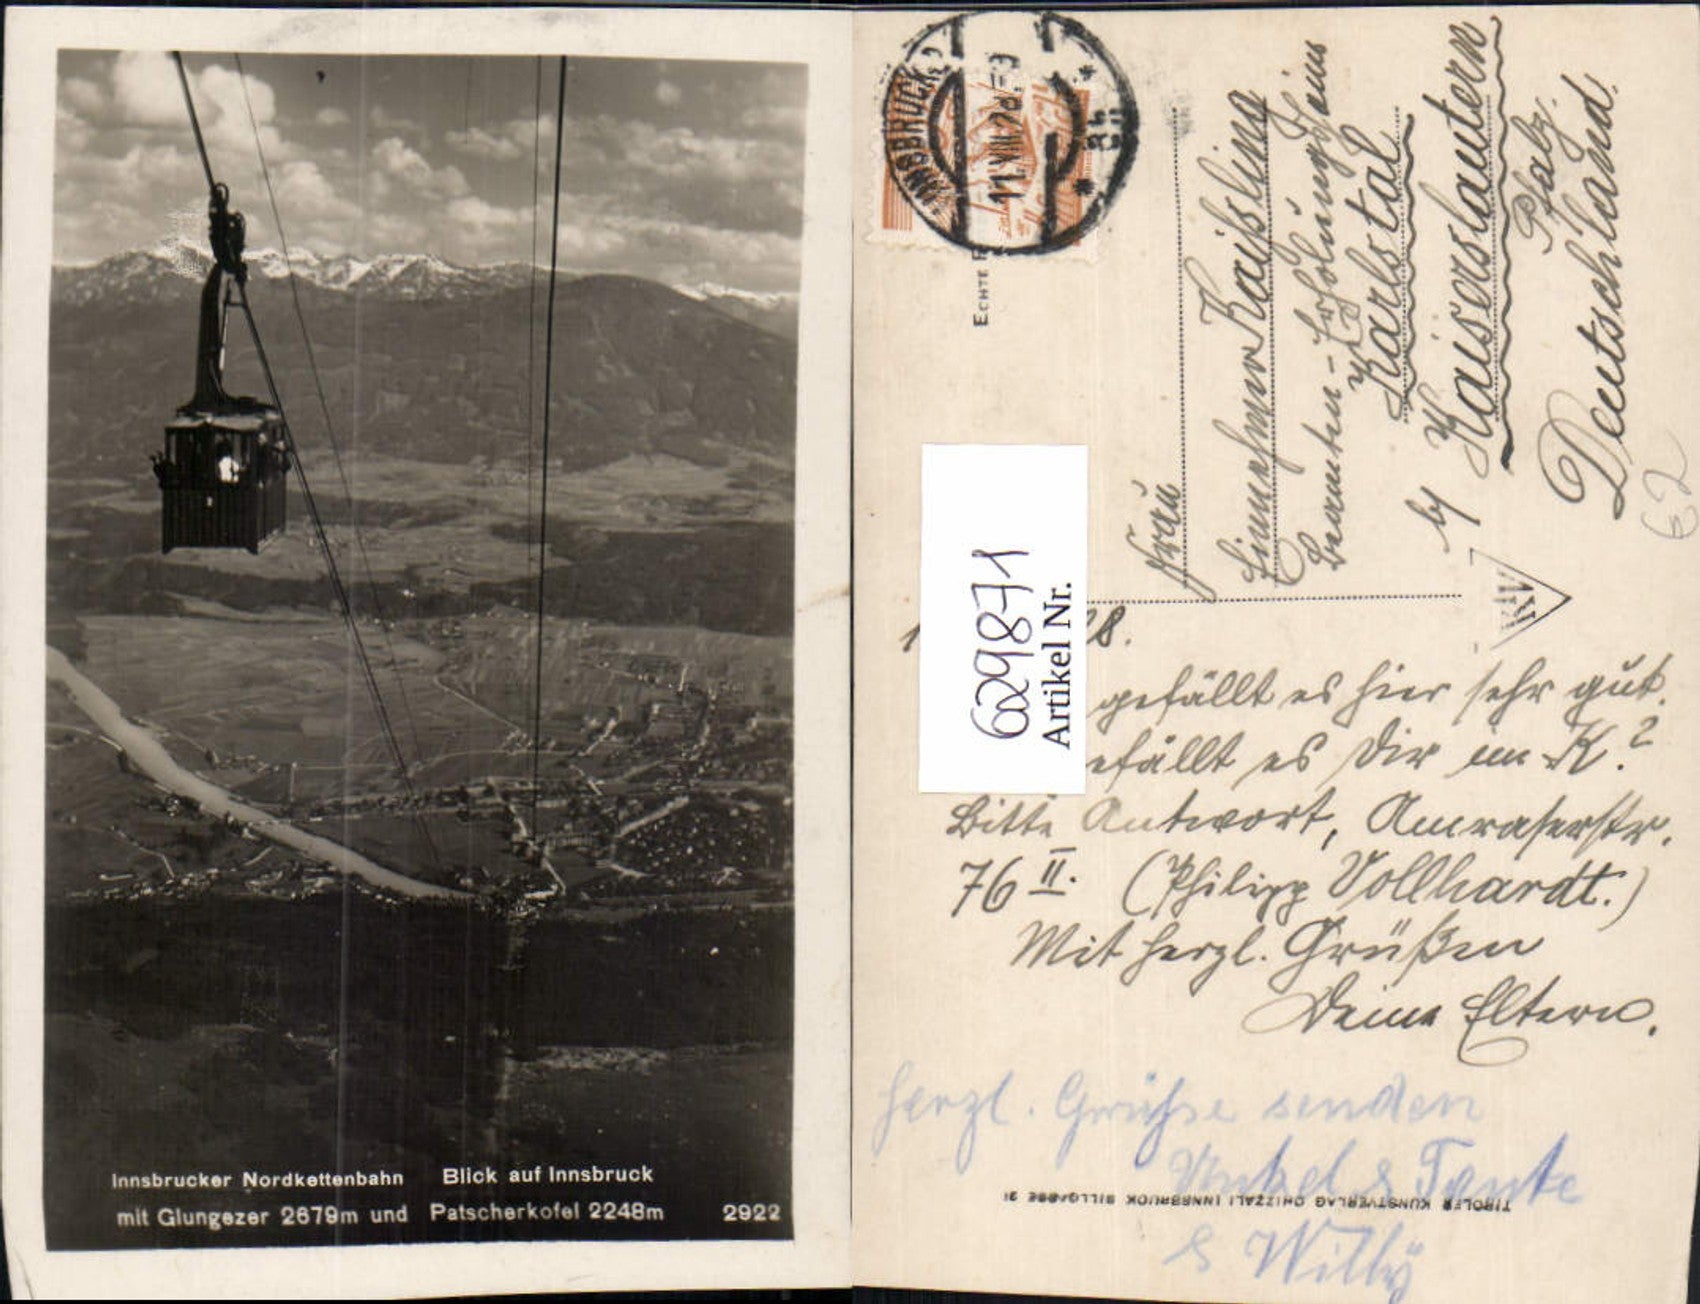 Innsbrucker Nordkettenbahn Blick auf Innsbruck
mit Glungezer 2679m und Patscherkofel 2248m 2922
INNSBRUCK 2
11.VIII.28.
ECHTE
Frau
Einnehmer Kaißling
Beamten-Erholungsheim
Karlstal
by Kaiserslautern
Pfalz.
Deutschland.
62
629871
Artikel Nr.
28.
gefällt es hier sehr gut.
efällt es Dir im K.?
Bitte Antwort, Amraserstr.
76 II. (Philipp Vollhardt.)
Mit herzl. Grüßen
Deine Eltern.
herzl. Grüße senden
Unkel & Tante
& Willy
TIROLER KUNSTVERLAG CHIZZALI INNSBRUCK SILLGASSE 21